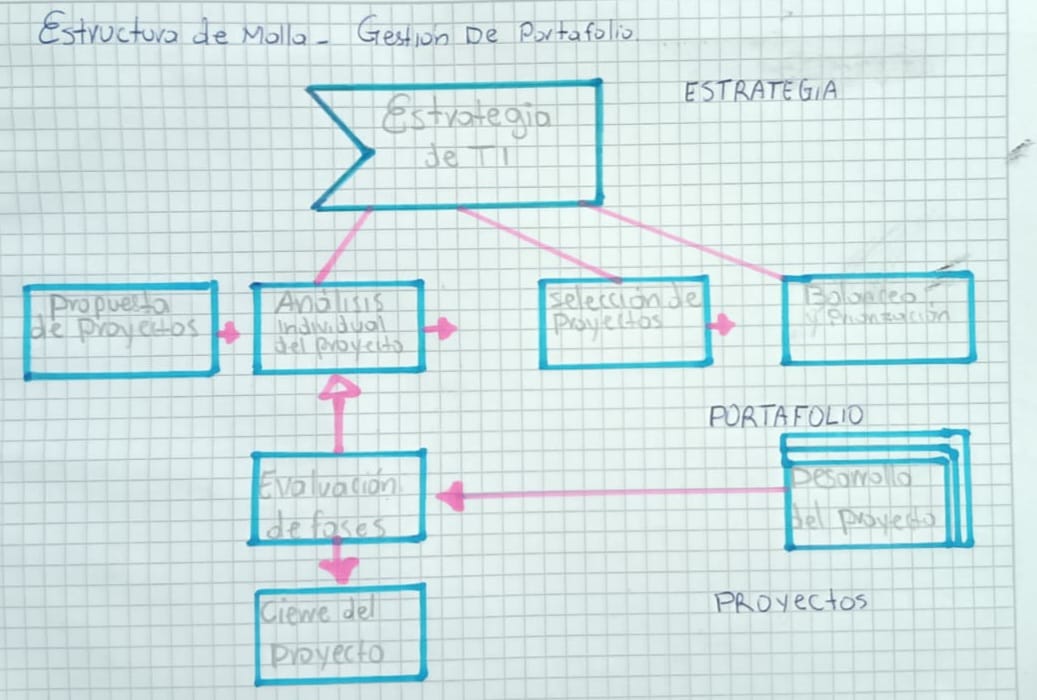 Estructura de Malla - Gestión De Portafolio
ESTRATEGIA
Estrategia
de TI
Propuesta
de Proyectos
Análisis
individual
del proyecto
selección de
Proyectos
Balanceo
y Priorización
PORTAFOLIO
Evaluación
de fases
Desarrollo
del proyecto
Cierre del
proyecto
PROyectos